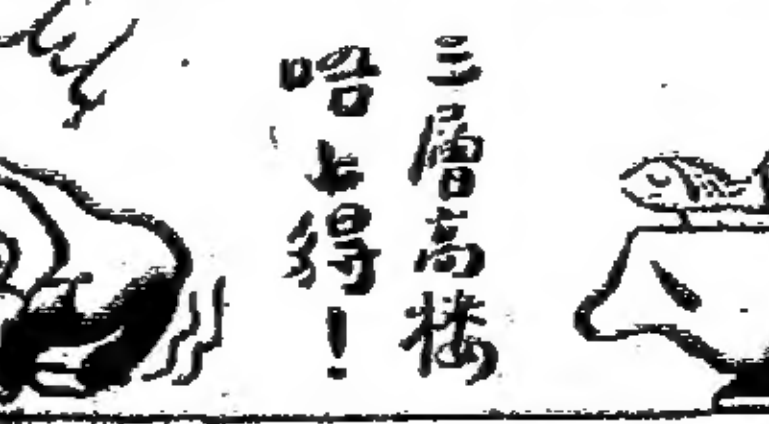 三層高樓
唔上得！